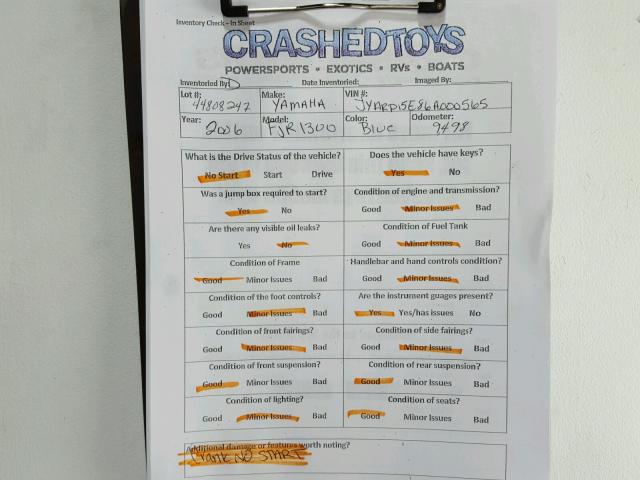 Inventory Check - In Sheet
CRASHEDTOYS
POWERSPORTS • EXOTICS • RVs • BOATS
Inventoried By: D Date Inventoried: Imaged By:
Lot #: Make: VIN #:
44808247 YAMAHA JYARP15E86A000565
Year: Model: Color: Odometer:
2006 FJR1300 Blue 9498
What is the Drive Status of the vehicle? Does the vehicle have keys?
No Start Start Drive Yes No
Was a jump box required to start? Condition of engine and transmission?
Yes No Good Minor Issues Bad
Are there any visible oil leaks? Condition of Fuel Tank
Yes No Good Minor Issues Bad
Condition of Frame Handlebar and hand controls condition?
Good Minor Issues Bad Good Minor Issues Bad
Condition of the foot controls? Are the instrument guages present?
Good Minor Issues Bad Yes Yes/has issues No
Condition of front fairings? Condition of side fairings?
Good Minor Issues Bad Good Minor Issues Bad
Condition of front suspension? Condition of rear suspension?
Good Minor Issues Bad Good Minor Issues Bad
Condition of lighting? Condition of seats?
Good Minor Issues Bad Good Minor Issues Bad
Additional damage or features worth noting?
Crank NO START